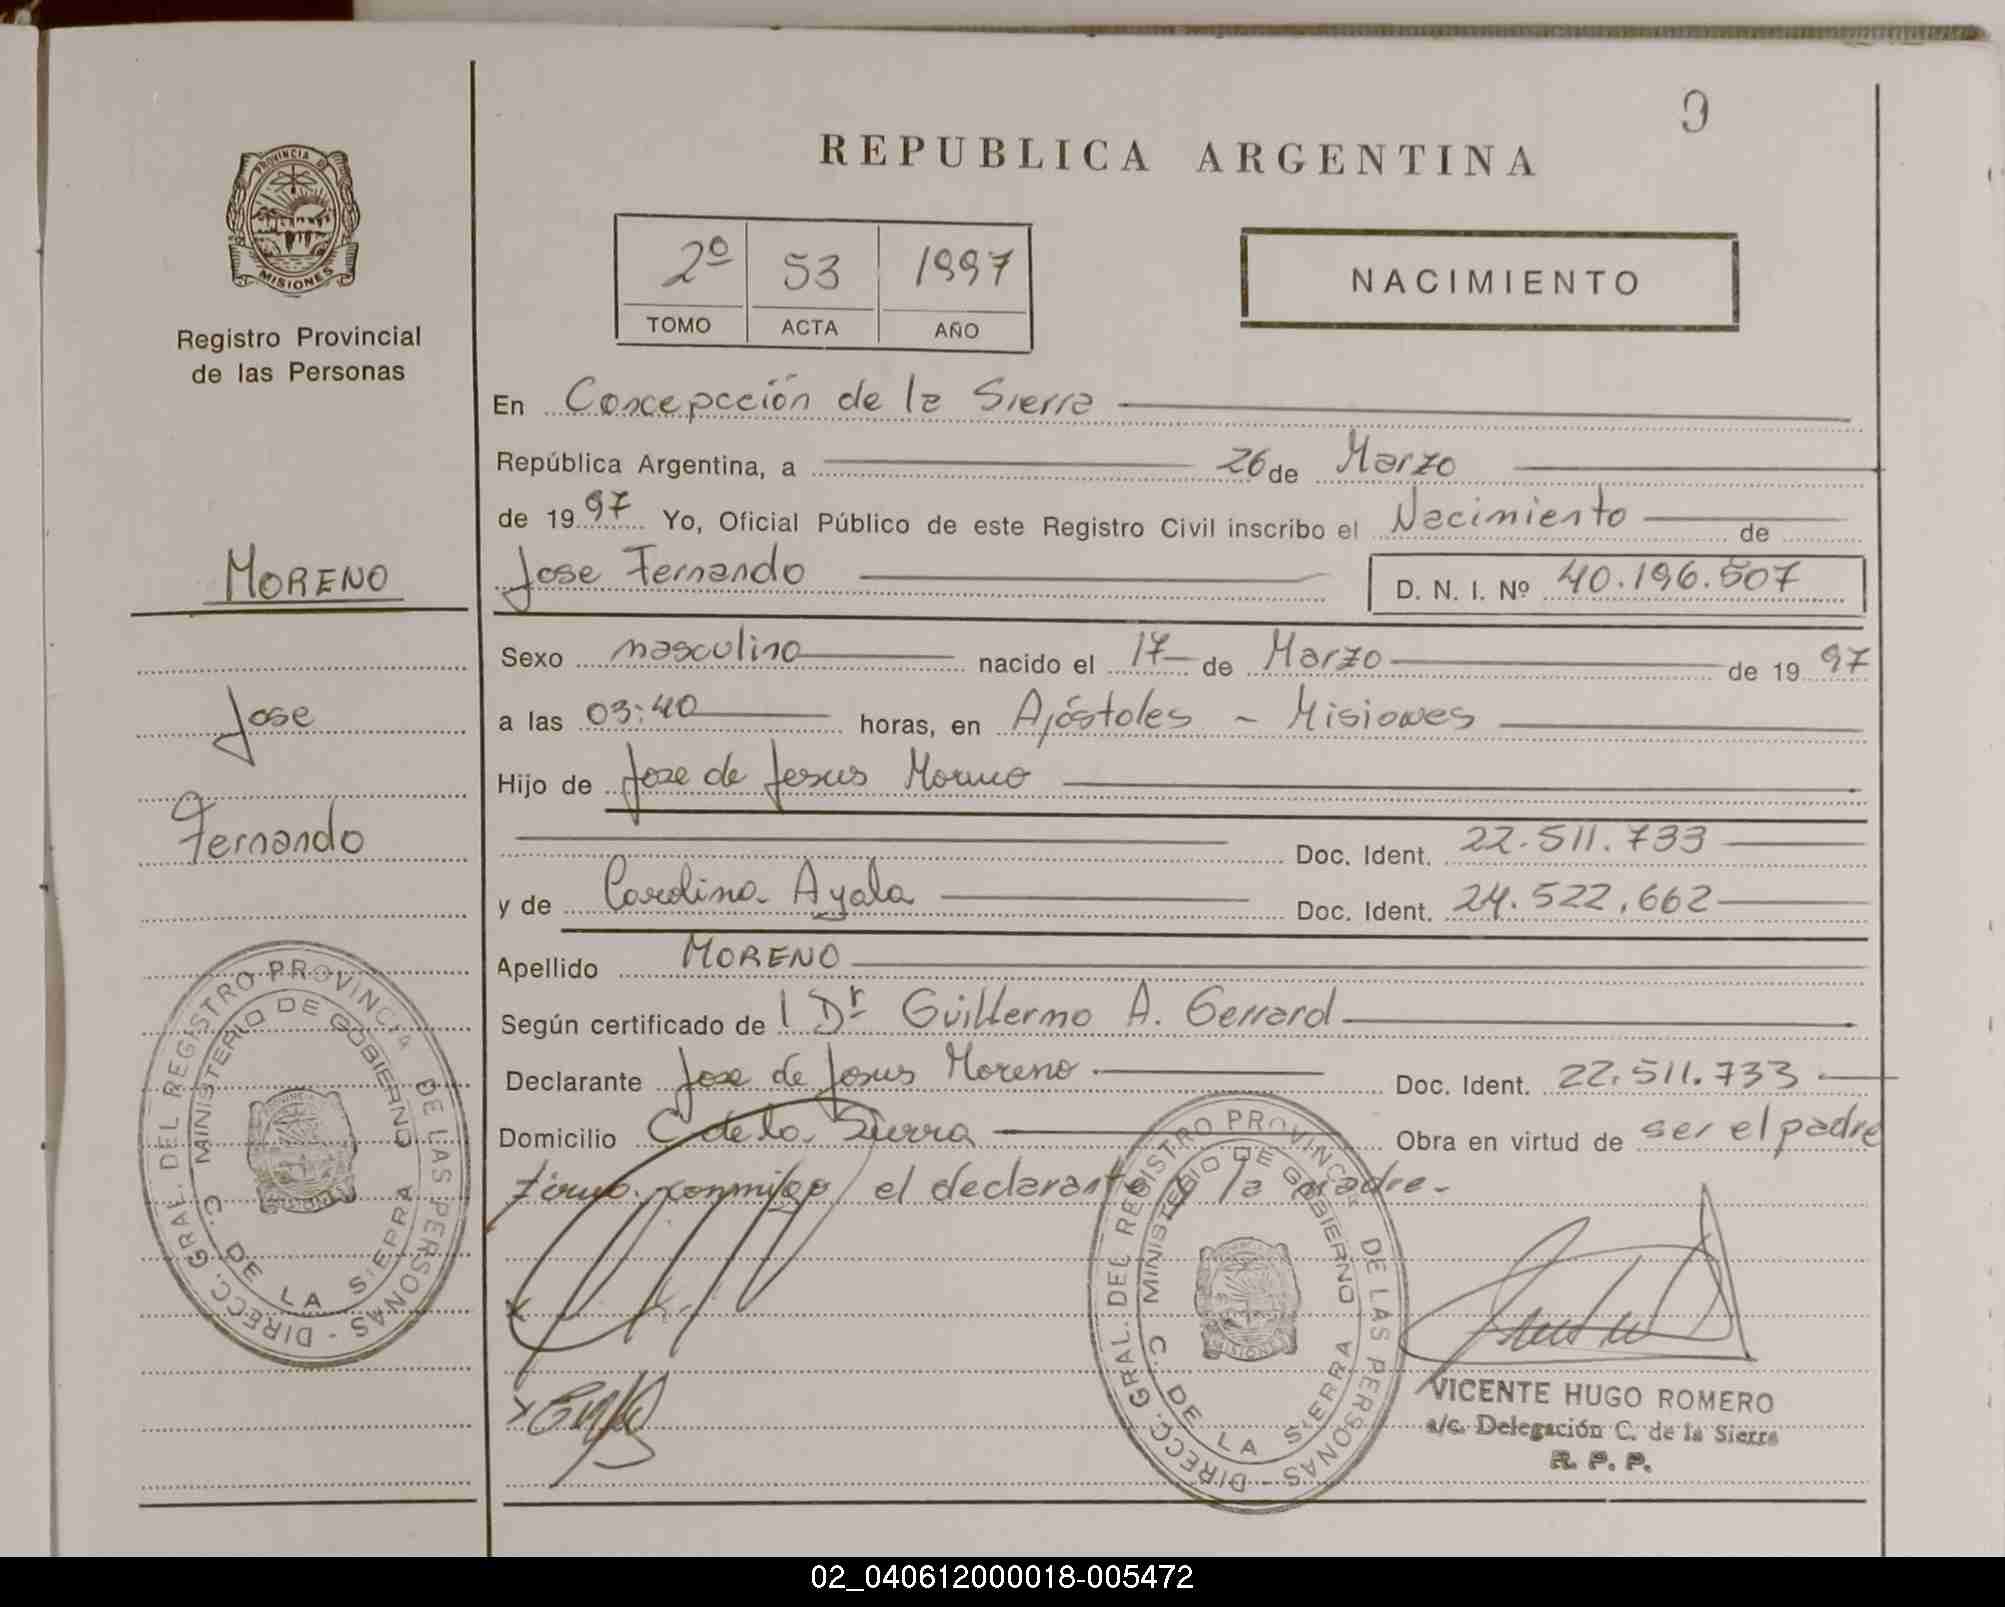 REPUBLICA ARGENTINA
PROVINCIA DE
MISIONES
Registro Provincial
de las Personas
2º 53 1997
TOMO ACTA AÑO
NACIMIENTO
En Concepcción de la Sierra
República Argentina, a 26 de Marzo
de 1997 Yo, Oficial Público de este Registro Civil inscribo el Nacimiento de
MORENO
Jose Fernando D. N. I. Nº 40.196.507
Sexo masculino nacido el 17 de Marzo de 1997
Jose
a las 03:40 horas, en Apóstoles - Misiones
Hijo de Jose de Jesus Moreno
Fernando
Doc. Ident. 22.511.733
y de Carolina Ayala Doc. Ident. 24.522.662
Apellido MORENO
Según certificado de l Dr Guillermo A. Gerrard
Declarante Jose de Jesus Moreno Doc. Ident. 22.511.733
Domicilio C de la Sierra Obra en virtud de ser el padre
firma conmigo el declarante y la madre.
DIRECC. GRAL. DEL REGISTRO PROVINCIAL DE LAS PERSONAS -
MINISTERIO DE GOBIERNO
C. DE LA SIERRA
DIRECC. GRAL. DEL REGISTRO PROVINCIAL DE LAS PERSONAS -
MINISTERIO DE GOBIERNO
C. DE LA SIERRA
VICENTE HUGO ROMERO
a/c. Delegación C. de la Sierra
R. P. P.
02_040612000018-005472